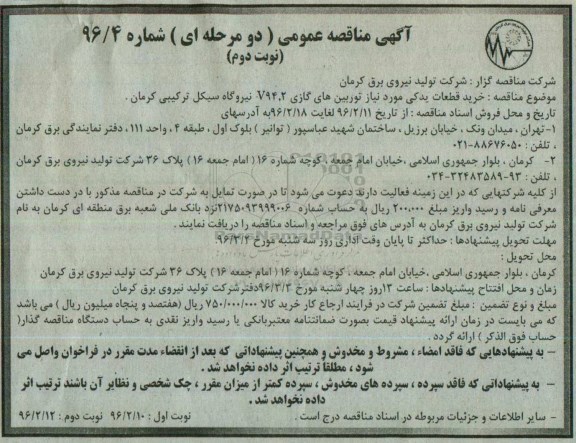 آگهی مناقصه عمومی ( دو مرحله ای ) شماره ۹۶/۴
(نوبت دوم)
شرکت مناقصه گزار : شرکت تولید نیروی برق کرمان
موضوع مناقصه : خرید قطعات یدکی مورد نیاز توربین های گازی V۹۴.۲ نیروگاه سیکل ترکیبی کرمان .
تاریخ و محل فروش اسناد مناقصه : از تاریخ ۹۶/۲/۱۱ لغایت ۹۶/۲/۱۸به آدرسهای
۱- تهران ، میدان ونک ، خیابان برزیل ، ساختمان شهید عباسپور ( توانیر ) بلوک اول ، طبقه ۴ ، واحد ۱۱۱ ، دفتر نمایندگی برق کرمان
، تلفن : ۸۸۶۷۶۰۵۰-۰۲۱
۲- کرمان ، بلوار جمهوری اسلامی ،خیابان امام جمعه ، کوچه شماره ۱۶ ( امام جمعه ۱۶ ) پلاک ۳۶ شرکت تولید نیروی برق کرمان
، تلفن : ۹۳-۳۲۴۸۳۵۸۹-۰۳۴
از کلیه شرکتهایی که در این زمینه فعالیت دارند دعوت می شود تا در صورت تمایل به شرکت در مناقصه مذکور با در دست داشتن
معرفی نامه و رسید واریز مبلغ ۲۰۰.۰۰۰ ریال به حساب شماره ۲۱۷۵۰۹۳۹۹۹۰۰۶نزد بانک ملی شعبه برق منطقه ای کرمان به نام
شرکت تولید نیروی برق کرمان به آدرس های فوق مراجعه و اسناد مناقصه را دریافت نمایند .
مهلت تحویل پیشنهادها : حداکثر تا پایان وقت اداری روز سه شنبه مورخ ۹۶/۳/۲
محل تحویل :
کرمان ، بلوار جمهوری اسلامی ،خیابان امام جمعه ، کوچه شماره ۱۶ ( امام جمعه ۱۶ ) پلاک ۳۶ شرکت تولید نیروی برق کرمان
زمان و محل افتتاح پیشنهادها : ساعت ۱۲روز چهار شنبه مورخ ۹۶/۳/۳دفترشرکت تولید نیروی برق کرمان
مبلغ و نوع تضمین : مبلغ تضمین شرکت در فرایند ارجاع کار خرید کالا ۷۵۰/۰۰۰/۰۰۰ ریال (هفتصد و پنجاه میلیون ریال ) می باشد
که می بایست در زمان ارائه پیشنهاد قیمت بصورت ضمانتنامه معتبربانکی یا رسید واریز نقدی به حساب دستگاه مناقصه گذار(
حساب فوق الذکر ) ارائه گردد .
– به پیشنهادهایی که فاقد امضاء ، مشروط و مخدوش و همچنین پیشنهاداتی که بعد از انقضاء مدت مقرر در فراخوان واصل می
شود ، مطلقاً ترتیب اثر داده نخواهد شد .
– به پیشنهاداتی که فاقد سپرده ، سپرده های مخدوش ، سپرده کمتر از میزان مقرر ، چک شخصی و نظایر آن باشند ترتیب اثر
داده نخواهد شد .
– سایر اطلاعات و جزئیات مربوطه در اسناد مناقصه درج است .
نوبت اول : ۹۶/۲/۱۰ نوبت دوم : ۹۶/۲/۱۲